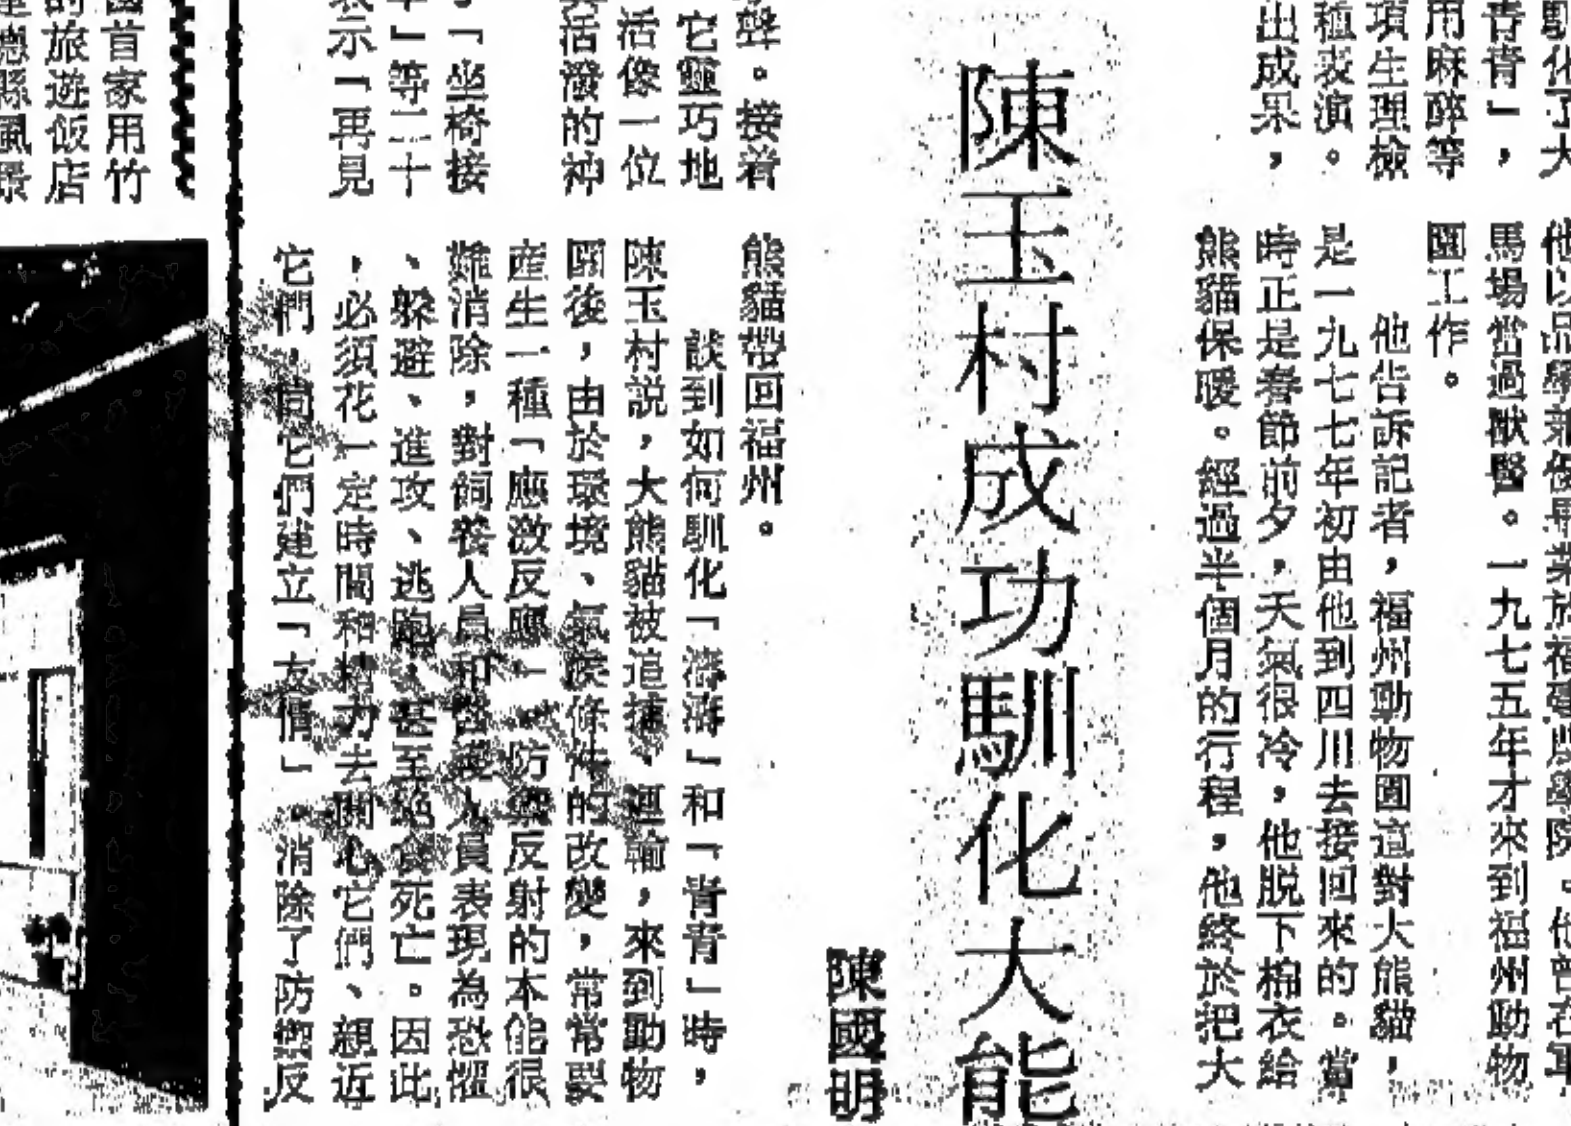 馴化了大
青青」，
用麻醉等
項生理檢
種表演。
出成果，
他以品學兼優畢業於福建農學院。他曾在軍
馬場當過獸醫。一九七五年才來到福州動物
園工作。
他告訴記者，福州動物園這對大熊貓，
是一九七七年初由他到四川去接回來的。當
時正是春節前夕，天氣很冷，他脱下棉衣給
熊貓保暖。經過半個月的行程，他終於把大
陳玉村成功馴化大熊
陳國明
聲。接着
它靈巧地
活像一位
活潑的神
，「坐椅接
」等二十
表示「再見
熊貓帶回福州。
談到如何馴化「濤濤」和「青青」時，
陳玉村説，大熊貓被追捕、運輸，來到動物
園後，由於環境、氣候條件的改變，常常要
産生一種「應激反應」—防禦反射的本能很
難消除，對飼養人員和醫護人員表現為恐懼
、躲避、進攻、逃跑，甚至絕食死亡。因此
，必須花一定時間和精力去關心它們、親近
它們，同它們建立「友情」。消除了防禦反
首家用竹
的旅遊飯店
德縣風景